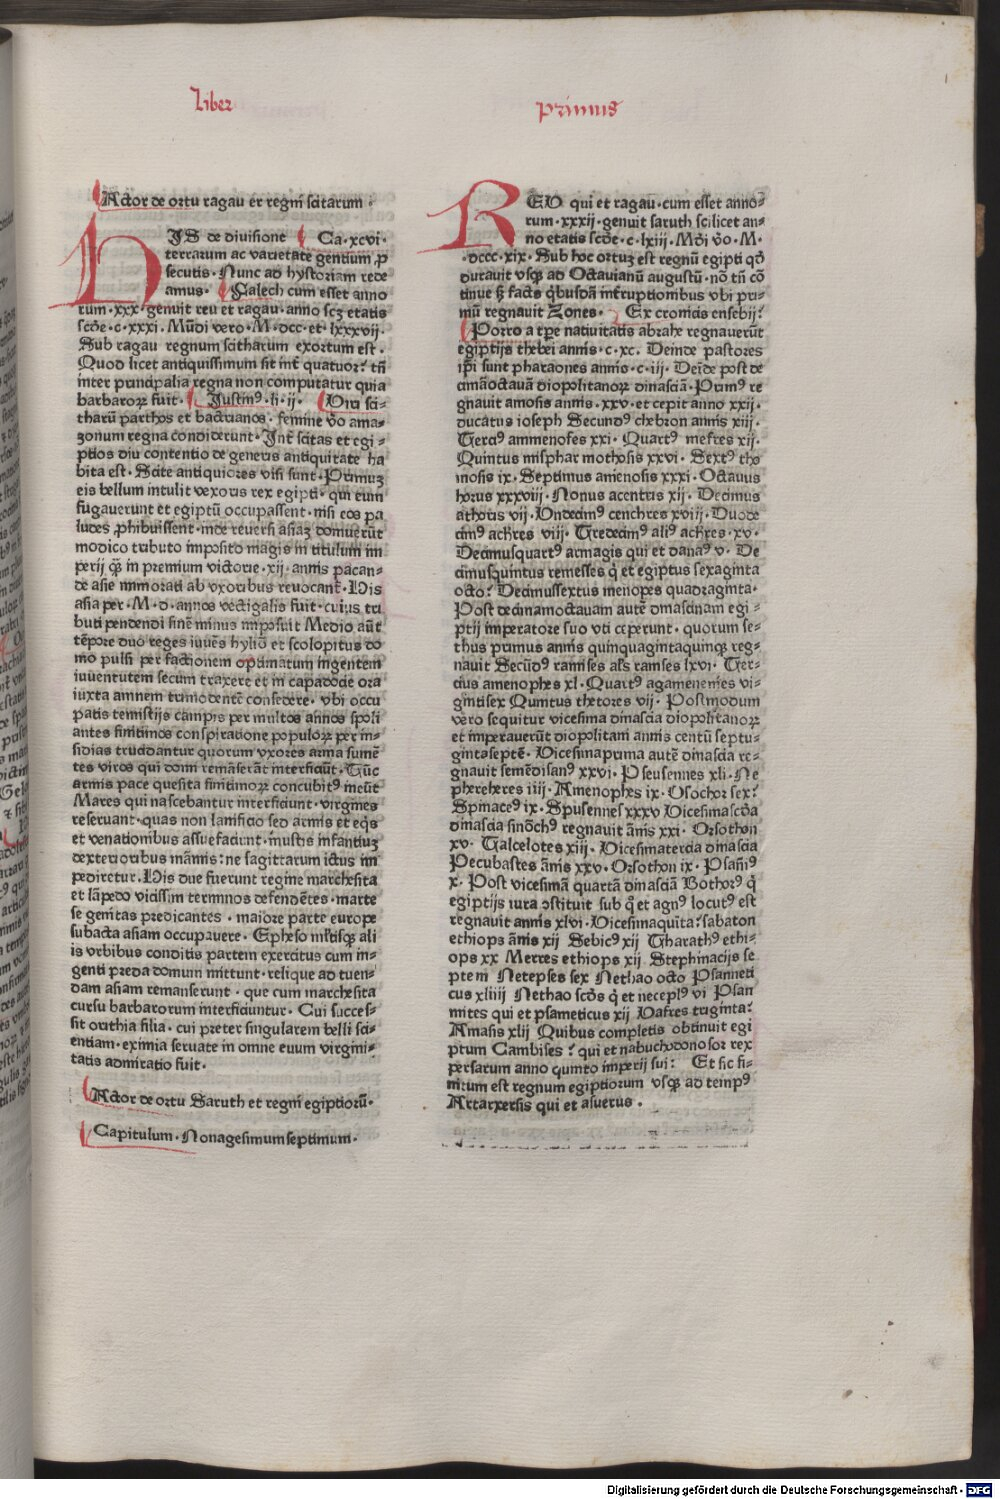 Liber
Primus
Actor de ortu ragau et regni scitarum ·
HIS de divisione Ca·xcvi·
terrarum ac varietate gentium ꝓ
secutis · Nunc ad hystoriam rede
amus · Falech cum esset anno
rum · xxx · genuit reu et ragau · anno scꝫ etatis
scd̄e · c · xxxi · Mūdi vero · M · dcc · et · lxxxvii ·
Sub ragau regnum scitharum exortum est ·
Quod licet antiquissimum sit int̄ quatuor? tn̄
inter principalia regna non computatur quia
barbaroꝝ fuit · Justinꝰ · li · ii · Viri sci⸗
tharū parthos et bactrianos · femine v̄o ama⸗
zonum regna condiderunt · Int̄ scitas et egi⸗
ptios diu contentio de generis antiquitate ha
bita est · Scite antiquiores visi sunt · Primuꝫ
eis bellum intulit vexoris rex egipti · qui eum
fugauerunt et egiptū occupassent · nisi eos pa
ludes ꝓhibuissent · inde reuersi asiaꝫ domuerūt
modico tributo imposito magis in titulum im
perij qꝫ̄ in premium victorie · xij · annis pacan⸗
de asie immorati ab vxoribus reuocant̄ · His
asia per · M · d · annos vectigalis fuit · cuius tri
buti pendendi finē minus imposuit Medio aūt
tēpore duo reges iuuēs hyliō et scolopitus do
mo pulsi per factionem optimatum ingentem
iuuentutem secum traxere et in capadocie ora
iuxta amnem trimodentē consedere · vbi occu
patis temistijs campis per multos annos spoli
antes finitimos conspiratione populoꝝ per in⸗
sidias trucidantur quorum vxores arma sumē
tes viros qui domi remāserāt interficiūt · Tūc
armis pace quesita finitimoꝝ concubitꝰ ineūt
Mares qui nascebantur interficiunt · virgines
reseruant · quas non lanificio sed armis et eqꝭ
et venationibus assuefaciunt · inustis infantiuꝫ
dexterioribus māmis: ne sagittarum ictus im
pediretur · His due fuerunt regine marchesita
et lāpedo vicissim terminos defendētes · marte
se genitas predicantes · maiore parte europe
subacta asiam occupauere · Epheso mltisqꝫ ali
is vrbibus conditis partem exercitus cum in⸗
genti preda domum mittunt · relique ad tuen⸗
dam asiam remanserunt · que cum marchesita
cursu barbarorum interficiuntur · Cui succes⸗
sit orithia filia · cui preter singularem belli sci⸗
entiam · eximia seruate in omne euum virgini⸗
tatis admiratio fuit ·
Actor de ortu Saruth et regni egiptiorū ·
Capitulum · Nonagesimumseptimum ·
REU qui et ragau · cum esset anno⸗
rum · xxxij · genuit saruth scilicet an⸗
no etatis scd̄e · c · lxiij · Mdi v̄o · M ·
· dccc · xix · Sub hoc ortuꝫ est regnū egipti qd̄
durauit vsqꝫ ad Octauianū augustū · nō tn̄ cō
tinue sꝫ factꝭ qbusdā int̄ruptionibus vbi pri⸗
mū regnauit Zones · Ex cronicis eusebij?
Porro a tꝑe natiuitatis abrahe regnauerūt
egiptijs thebei annis · c · xc · Deinde pastores
ip̄i sunt pharaones annis · c · iij · Deīde post de
cimāoctauā diopolitanoꝝ dinasciā · Primꝰ re
gnauit amosis annis · xxv · et cepit anno xxij ·
ducatus ioseph Secundꝰ chebron annis xiij ·
Terciꝰ ammenofes xxi · Quartꝰ mefres xij ·
Quintus misphar mothosis xxvi · Sextꝰ tho
mosis ix · Septimus amenosis xxxi · Octauus
horus xxxviij · Nonus acentris xij · Decimus
athoris vij · Undecimꝰ cenchres xviij · Duode
cimꝰ ach̄res viij · Tredecimꝰ aliꝰ ach̄res · xv ·
Decimusquartꝰ armagis qui et danaꝰ v · De
cimusquintus remesses q̄ et egiptus sexaginta
octo? Decimussextus menopes quadraginta ·
Post decimamoctauam autē dinasciam egi⸗
ptij imperatore suo vti ceperunt · quorum se⸗
thus primus annis quinquagintaquinqꝫ reg⸗
nauit Secūdꝰ ramises als ramses lxvi · Ter⸗
cius amenophes xl · Quartꝰ agamenemes vi⸗
gintisex Quintus thetores vij · Postmodum
vero sequitur vicesima dinascia diopolitanoꝝ
et imperauerūt diopolitani annis centū septu⸗
gintaseptē · Vicesimaprima autē dinascia re⸗
gnauit semēdisanꝰ xxvi · Pseusennes xli · Ne
phereheres iiij · Amenophes ix · Osochor sex?
Spinaceꝰ ix · Spusennes xxxv Vicesimascd̄a
dinascia sinōchꝰ regnauit ānis xxi · Orsothon
xv · Talcelotes xiij · Vicesimatercia dinascia
Pecubastes ānis xxv · Orsothon ix · Psamꝰ
x · Post vicesimā quartā dinasciā Bothorꝰ q̄
egiptijs iura ꝯstituit sub q̄ et agnꝰ locutꝰ est
regnauit annis xlvi · Vicesimaquīta? sabaton
ethiops ānis xij Sebicꝰ xij Tharathꝰ ethi⸗
ops xx Merres ethiops xij Stephinacijs se
ptem Netepses sex Nethao octo Psanneti
cus xliiij Nethao scd̄s q̄ et neceplꝰ vi Psan
mites qui et psameticus xij Vafres triginta?
Amasis xlij Quibus completis obtinuit egi
ptum Cambises? qui et nabuchodonosor rex
persarum anno quinto imperij sui: Et sic fi⸗
nitum est regnum egiptiorum vsqꝫ ad tempꝰ
Artarxersis qui et asuerus ·
Digitalisierung gefördert durch die Deutsche Forschungsgemeinschaft - DFG